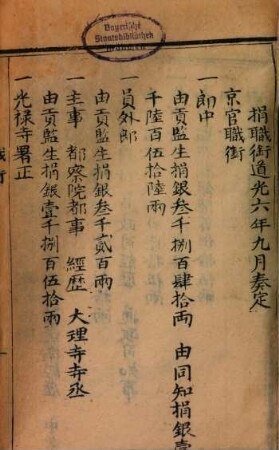 Bayerische
Staatsbibliothek
München
捐職銜道光六年九月奏定
京官職銜
一郎中
由貢監生捐銀叁千捌百肆拾兩 由同知捐銀壹
千陸百伍拾陸兩
一員外郎
由貢監生捐銀叁千貳百兩
一主事 都察院都事 經歷 大理寺寺丞
由貢監生捐銀壹千捌百伍拾兩
一光禄寺署正